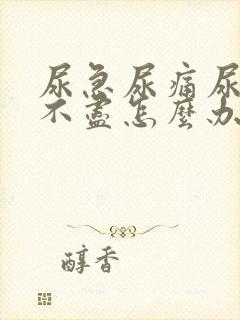 尿急尿痛尿
不盡怎麼办
醇香